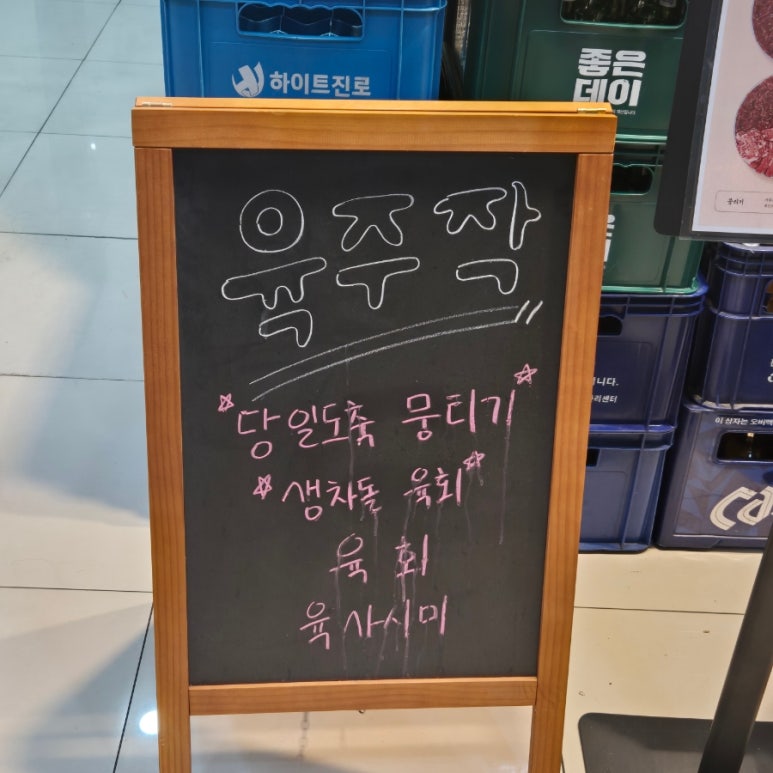 하이트진로
좋은
데이
육주작
당일도축 뭉티기
생차돌 육회
육회
육사시미
뭉티기
니다.
리센터
이 상자는 오비맥
Ca